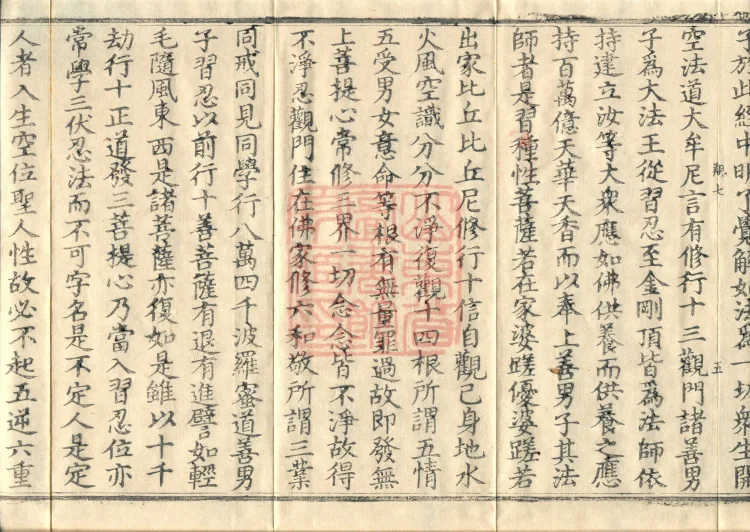 子於此經中明了覺解如法為一切衆生開
空法道大牟尼言有修行十三觀門諸善男
子為大法王從習忍至金剛頂皆為法師依
持建立汝等大衆應如佛供養而供養之應
持百萬億天華天香而以奉上善男子其法
師者是習種性菩薩若在家婆蹉優婆蹉若
出家比丘比丘尼修行十信自觀己身地水
火風空識分分不淨復觀十四根所謂五情
五受男女意命等根有無量罪過故即發無
上菩提心常修三界一切念念皆不淨故得
不淨忍觀門住在佛家修六和敬所謂三業
同戒同見同學行八萬四千波羅蜜道善男
子習忍以前行十善菩薩有退有進譬如輕
毛隨風東西是諸菩薩亦復如是雖以十千
劫行十正道發三菩提心乃當入習忍位亦
常學三伏忍法而不可字名是不定人是定
人者入生空位聖人性故必不起五逆六重
七
五